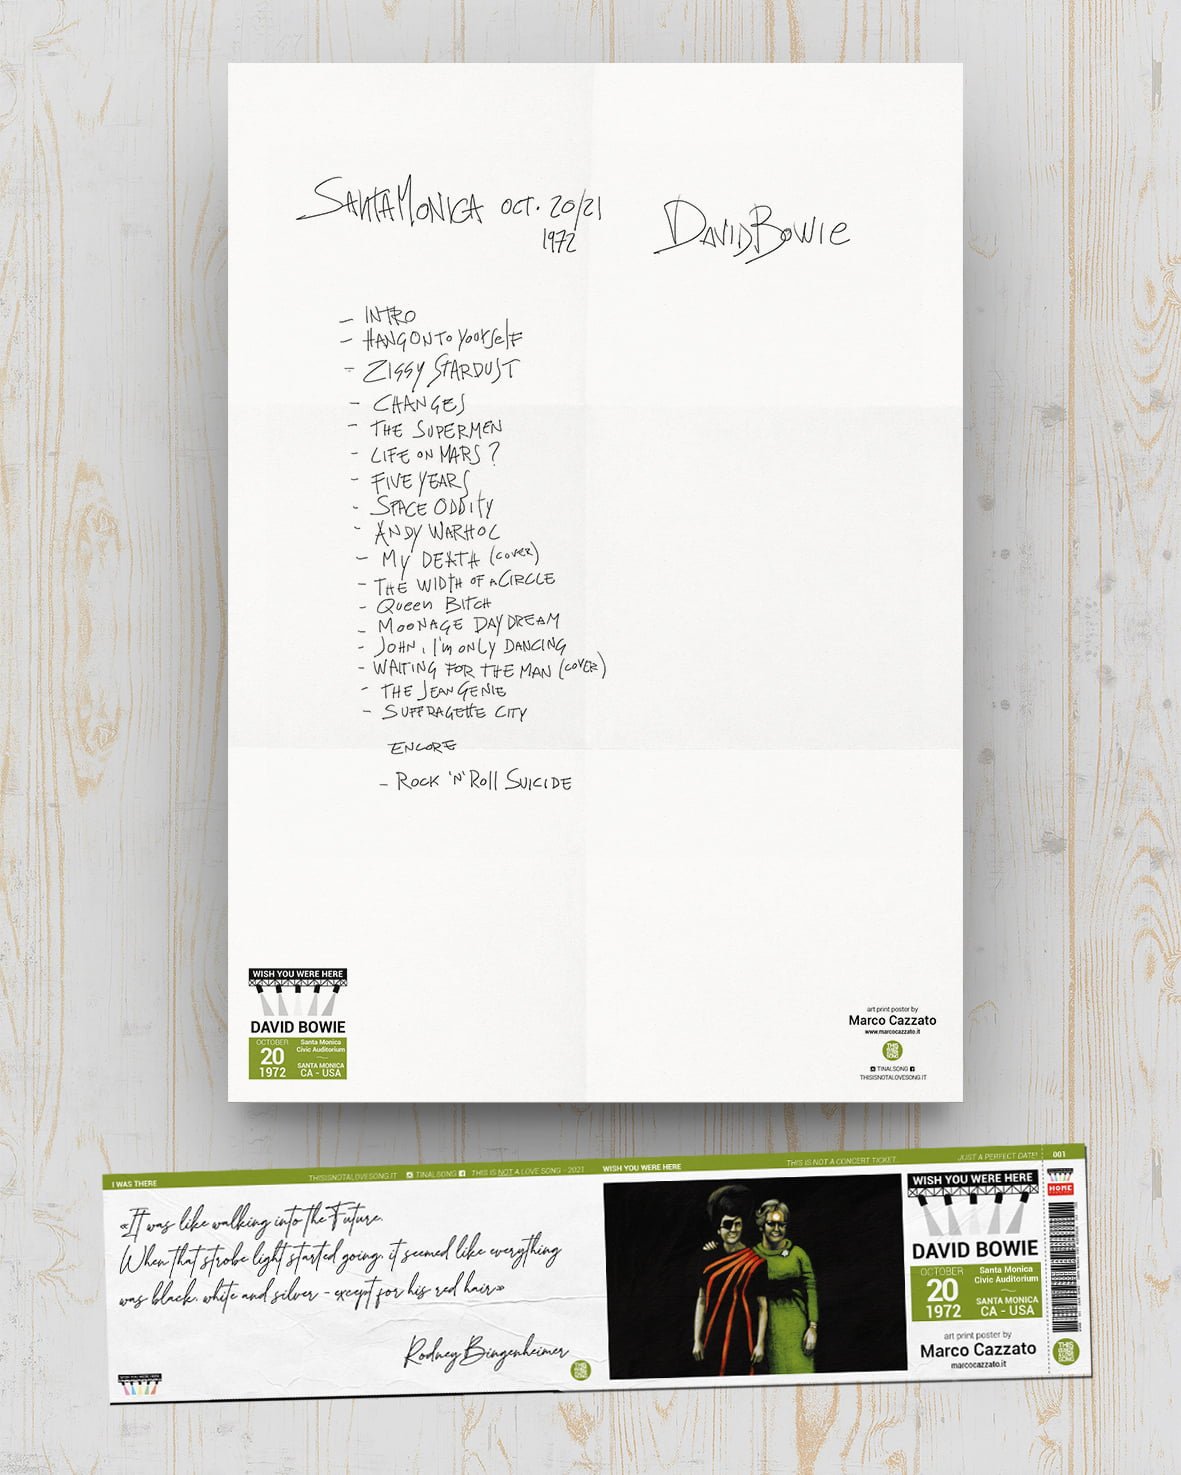 SANTA MONICA OCT. 20/21
1972
DAVID BOWIE
– INTRO
– HANG ON TO YourSelF
– ZIGGY STARDUST
– CHANGES
– THE SUPERMEN
– LIFE ON MARS ?
– FIVE YEARS
– SPACE ODDITY
– ANDY WARHOL
– MY DEATH (COVER)
– THE WIDTH OF A CIRCLE
– Queen BITCH
– MOONAGE DAYDREAM
– JOHN, I'm ONLY DANCING
– WAITING FOR THE MAN (COVER)
– THE JEAN GENIE
– SUFFRAGETTE CITY
ENCORE
– ROCK 'N' Roll SUICIDE
WISH YOU WERE HERE
DAVID BOWIE
OCTOBER
20
1972
Santa Monica
Civic Auditorium
SANTA MONICA
CA - USA
art print poster by
Marco Cazzato
www.marcocazzato.it
TINALSONG
THISISNOTALOVESONG.IT
I WAS THERE
THISISNOTALOVESONG.IT TINALSONG THIS IS NOT A LOVE SONG - 2021
WISH YOU WERE HERE
THIS IS NOT A CONCERT TICKET
JUST A PERFECT DATE!
001
«It was like walking into the Future.
When that strobe light started going, it seemed like everything
was black, white and silver - except for his red hair»
Rodney Bingenheimer
WISH YOU WERE HERE
DAVID BOWIE
OCTOBER
20
1972
Santa Monica
Civic Auditorium
SANTA MONICA
CA - USA
art print poster by
Marco Cazzato
marcocazzato.it
HOME